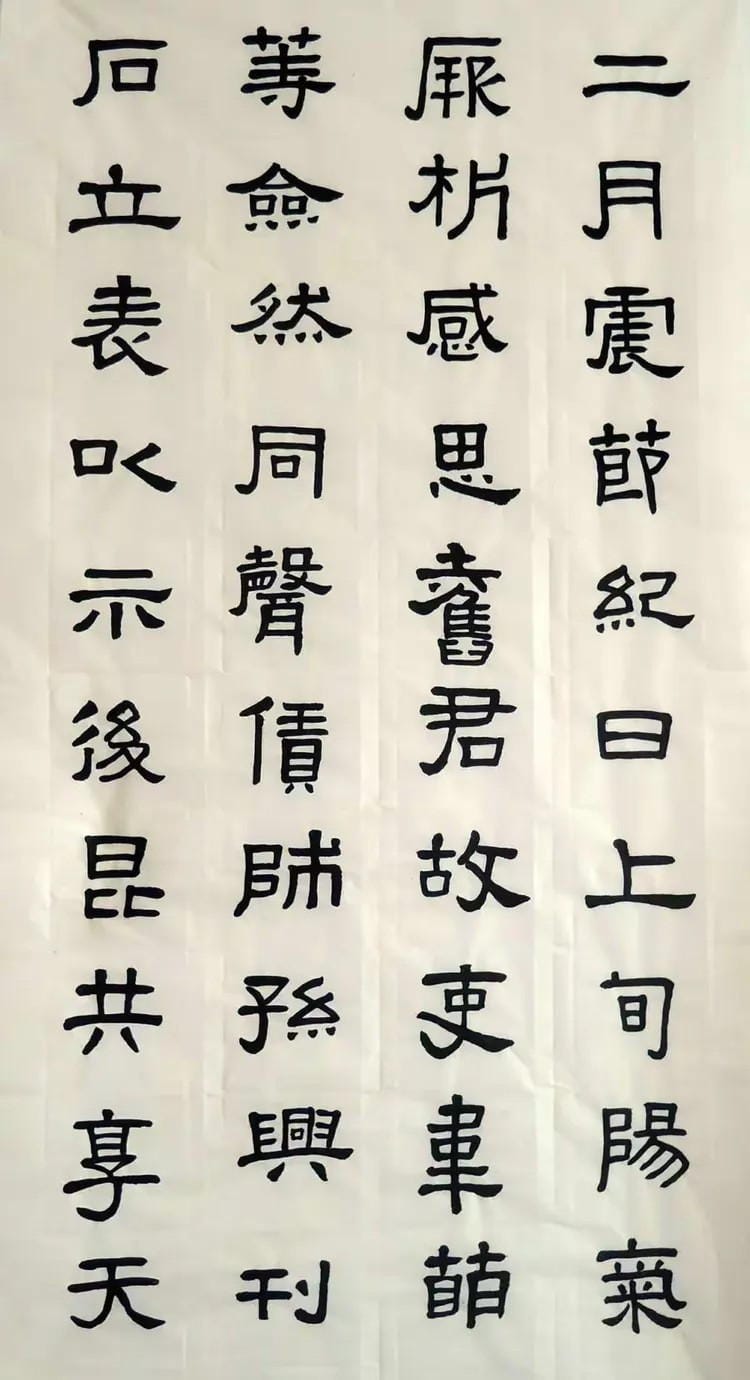 二月震節紀日上旬陽氣
厥析感思舊君故吏韋萌
等僉然同聲賃師孫興刊
石立表以示後昆共享天